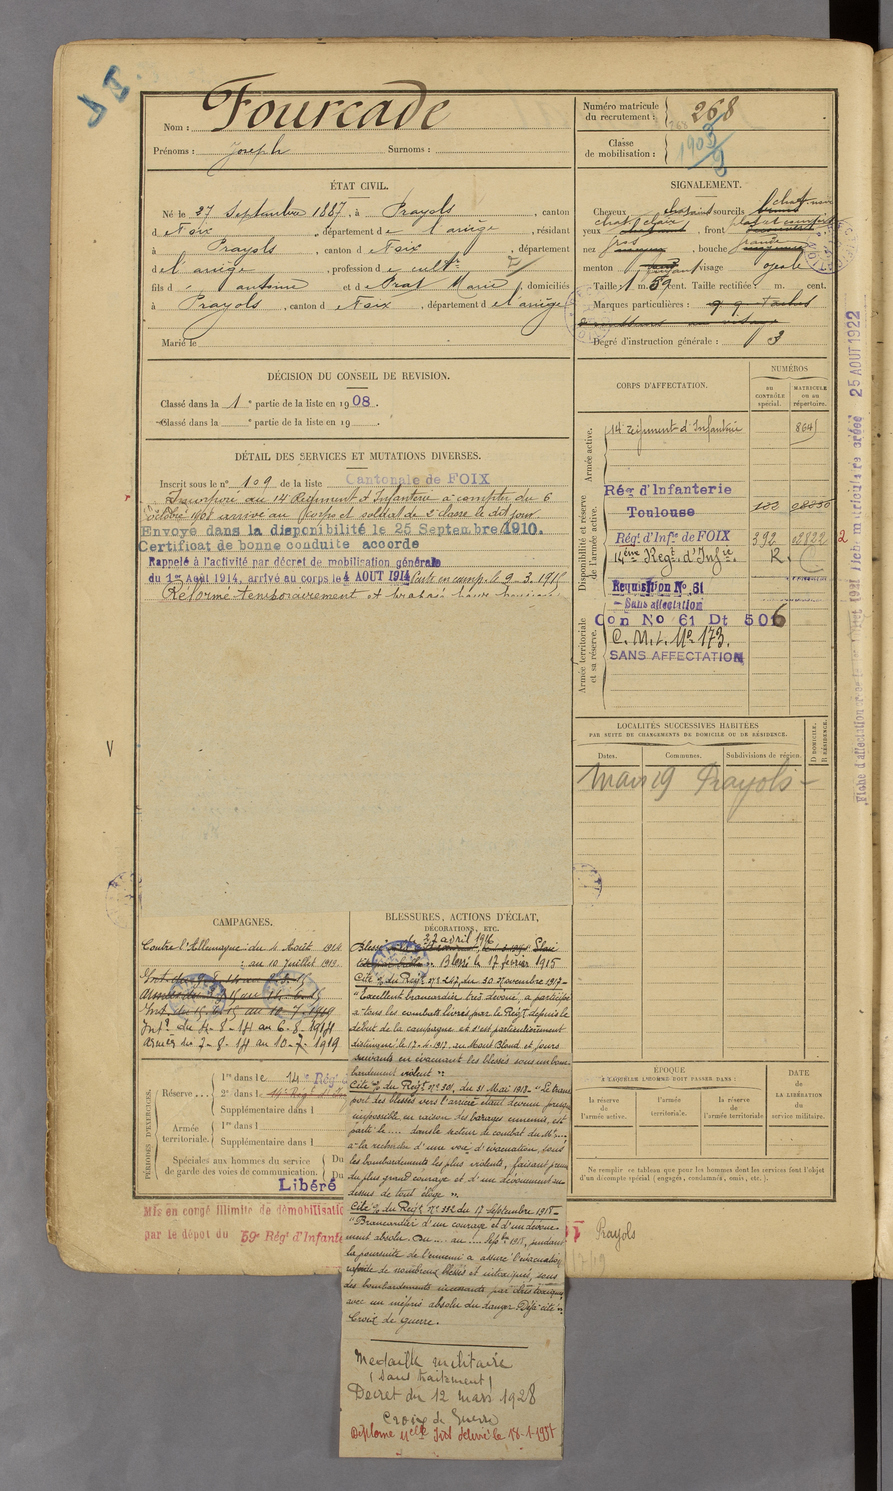 Nom : Fourcade
Prénoms : Joseph Surnoms :
Numéro matricule du recrutement : 268
Classe de mobilisation :
ÉTAT CIVIL.
Né le 27 Septembre 1887, à Prayols, canton
d e Foix, département d e l'ariège, résidant
à Prayols, canton d e Foix, département
d e l'ariège, profession d e cultr
fils d' antoine et d e Prat Marie, domiciliés
à Prayols, canton d e Foix, département d e l'ariège
Marié le
SIGNALEMENT.
Cheveux chatains sourcils
yeux, front
nez gros, bouche grande
menton visage ovale
Taille : 1 m. 59 cent. Taille rectifiée : m. cent.
Marques particulières :
Degré d'instruction générale : 3
DÉCISION DU CONSEIL DE REVISION.
Classé dans la 1e partie de la liste en 1908.
Classé dans la e partie de la liste en 19
DÉTAIL DES SERVICES ET MUTATIONS DIVERSES.
Inscrit sous le n° 109 de la liste Cantonale de FOIX
Incorporé au 14e Régiment d'Infanterie à compter du 6
octobre 1908 arrivé au Corps et soldat de 2e classe le dit jour
Envoyé dans la disponibilité le 25 Septembre 1910.
Certificat de bonne conduite accordé
Rappelé à l'activité par décret de mobilisation générale
du 1er Août 1914, arrivé au corps le 4 AOUT 1914
Réformé temporairement
CORPS D'AFFECTATION.
NUMÉROS
au CONTRÔLE spécial.
MATRICULE ou au répertoire.
Armée active.
14e régiment d'Infanterie
Disponibilité et réserve de l'armée active.
Rég d'Infanterie
Toulouse
Régt. d'Infie de FOIX 392 02822
14ème Régt d'Infie. R.
Armée territoriale et sa réserve.
Réquisition No 61
Sans affectation
Con No 61 Dt 506
C.M.t. No 173.
SANS AFFECTATION
25 AOUT 1922
LOCALITÉS SUCCESSIVES HABITÉES
PAR SUITE DE CHANGEMENTS DE DOMICILE OU DE RÉSIDENCE.
Dates. Communes. Subdivisions de région.
D. DOMICILE. R. RÉSIDENCE.
Mars 19 Prayols
V
CAMPAGNES.
Contre l'Allemagne du 4 Août 1914
au 10 Juillet 1919.
Intr du 4-8-14 au 6-8-1914
armées du 7-8-14 au 10-7-1919
BLESSURES, ACTIONS D'ÉCLAT,
DÉCORATIONS, ETC.
27 avril 1916
Blessé le 17 février 1915
Cité o/ du Régt no 247, du 30 Novembre 1917 –
"Excellent brancardier très dévoué, a participé
à tous les combats livrés par le Régt depuis le
début de la campagne et s'est particulièrement
distingué le 17.4.1917, au Mont Blond et jours
suivants en évacuant les blessés sous un bom-
bardement violent".
Cité o/ du Régt no 301, du 31 Mai 1918 – "Le trans
port des blessés vers l'arrière étant devenu presque
impossible en raison des barages ennemis, est
parti le .... dans le secteur de combat du
à la recherche d'une voie d'évacuation, sous
les bombardements les plus violents, faisant preuve
du plus grand courage et d'un dévouement au
dessus de tout éloge".
Cité o/ du Régt no 332 du 17 Septembre 1918 –
"Brancardier d'un courage et d'un dévoue-
ment absolu. Du .... au .... Septbre 1918, pendant
la poursuite de l'ennemi a assuré l'évacuation
rapide de nombreux blessés et intoxiqués, sous
des bombardements incessants, par obus toxiques,
avec un mépris absolu du danger. Déjà cité".
Croix de guerre.
Médaille militaire
(sans traitement)
Décret du 12 mars 1928
Croix de Guerre
PÉRIODES D'EXERCICES.
Réserve ... 1re dans le 14e Rég
2e dans le
Supplémentaire dans l
Armée territoriale. 1re dans l
Supplémentaire dans l
Spéciales aux hommes du service
de garde des voies de communication. Du
Du
Libéré
Mis en congé illimité de démobilisation
par le dépôt du 59e Régt d'Infant
Prayols
ÉPOQUE
À LAQUELLE L'HOMME DOIT PASSER DANS :
la réserve de l'armée active.
l'armée territoriale.
la réserve de l'armée territoriale
DATE de LA LIBÉRATION du service militaire.
Ne remplir ce tableau que pour les hommes dont les services font l'objet
d'un décompte spécial (engagés, condamnés, omis, etc.).